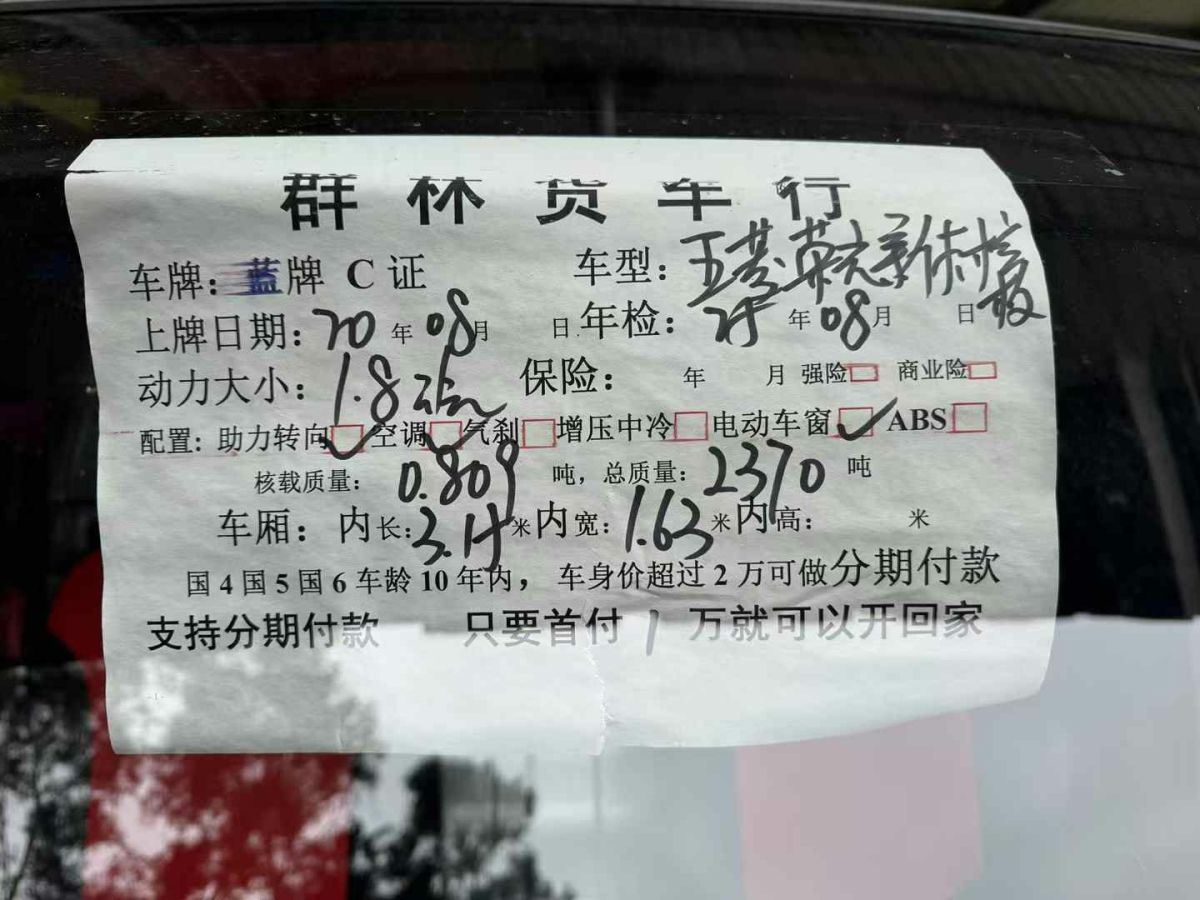 群林货车行
车牌：蓝牌 C 证 车型：五菱荣光新
上牌日期：20 年 08 月 日 年检：25 年 08 月 日
动力大小：1.8 保险： 年 月 强险 商业险
配置：助力转向 空调 气刹 增压中冷 电动车窗 ABS
核载质量： 0.809 吨，总质量：2370 吨
车厢：内长：3.15 米 内宽：1.63 米 内高： 米
国 4 国 5 国 6 车龄 10 年内， 车身价超过 2 万可做分期付款
支持分期付款 只要首付 1 万就可以开回家
-1-